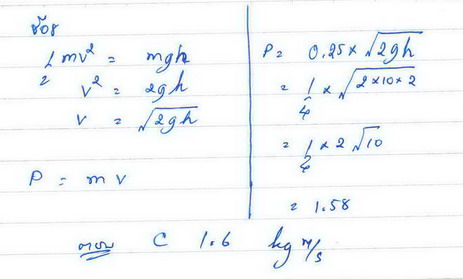 ช้อย
½ mv² = mgh
v² = 2gh
v = √2gh
P = mv
P = 0.25 × √2gh
= ¼ × √2×10×2
= ¼ × 2√10
= 1.58
ตอบ C 1.6 kg m/s